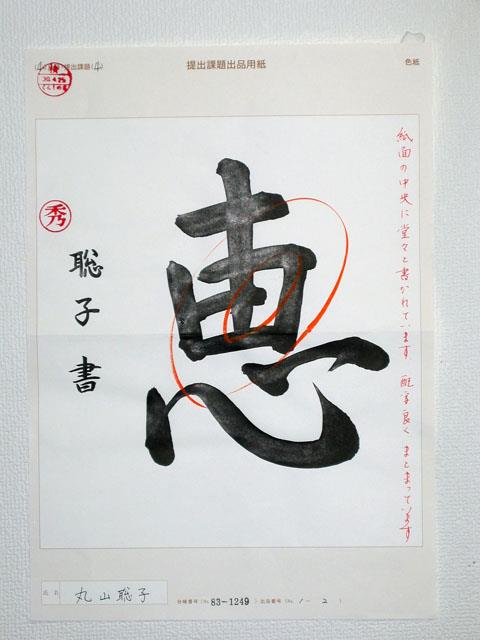 提出課題出品用紙
色紙
提出課題(4)
30.4.25
恵
秀
聡子書
紙面の中央に堂々と書かれています 配字良く まとまっています
氏名
丸山聡子
83-1249
出品番号(No. 1-2 )